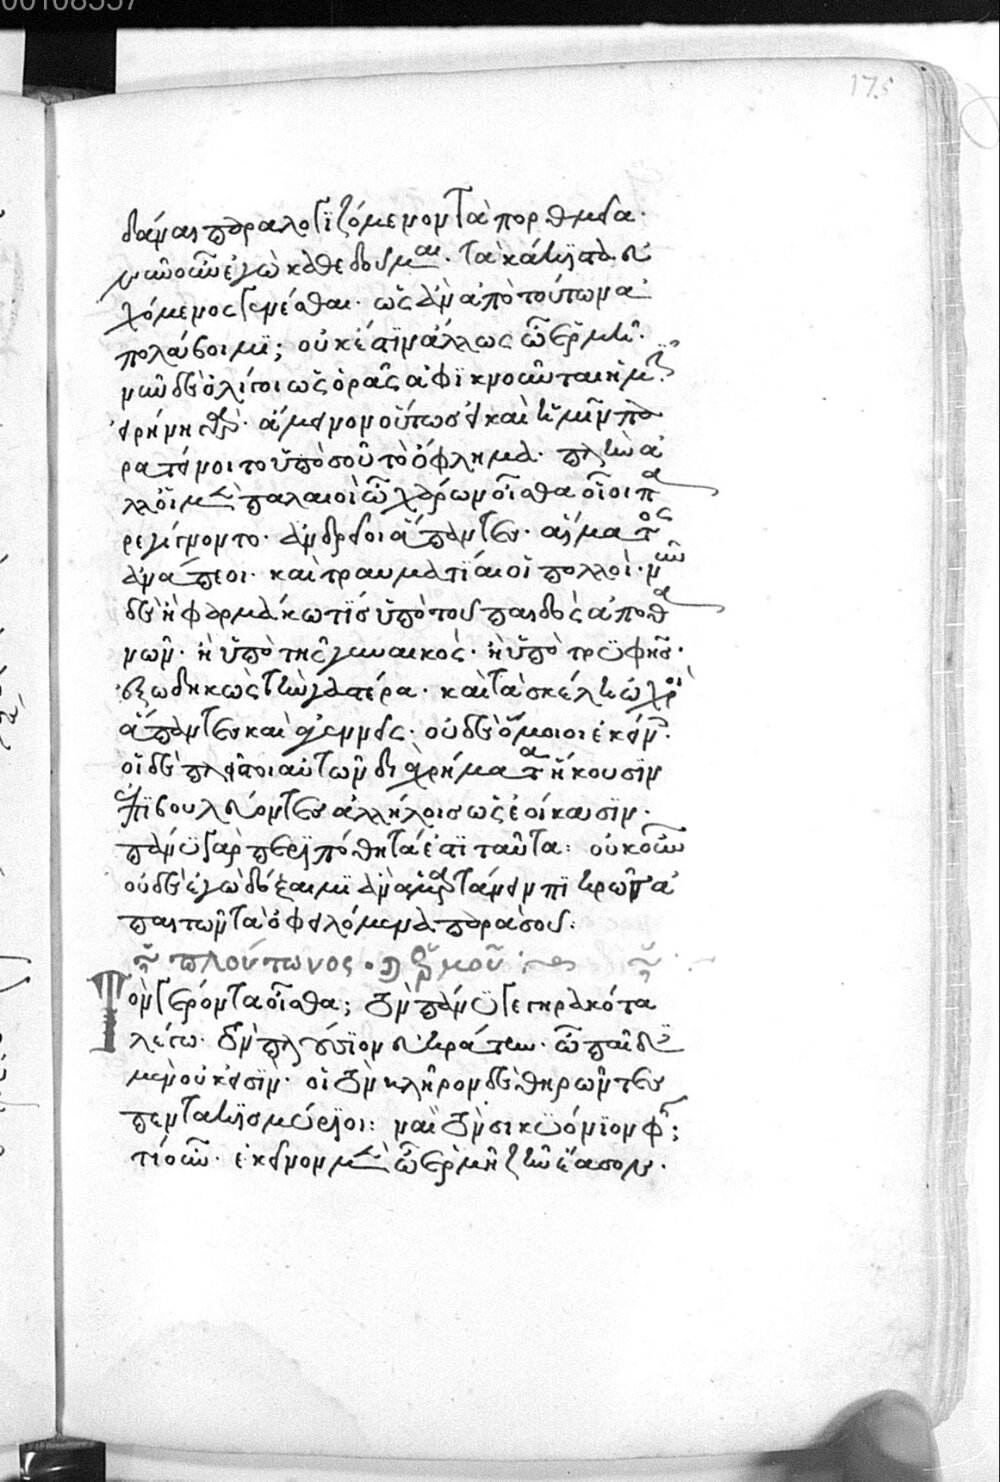 00108337
175
δᾶναι παραλογιζόμενον τὰ πορθμεῖα.
νῦν οὖν ἐγὼ καθεδοῦμαι. τὰ κάλλιστα εὐ
χόμενος γενέσθαι. ὡς ἂν ἀπὸ τούτων ἀ
πολάβοιμι; οὐκ ἔστιν ἄλλως ὦ ἑρμῆ.
νῦν δὲ ὀλίγοι ὡς ὁρᾶς ἀφικνοῦνται ἡμῖν
εἰρήνη γάρ. ἄμεινον οὕτως εἰ καὶ ἡμῖν πα
ρατείνοιτο ὑπὸ σοῦ τὸ ὄφλημα. πλὴν ἀ
λλ' οἱ μὲν παλαιοὶ ὦ χάρων οἶσθα οἷοι πα
ρεγίγνοντο. ἀνδρεῖοι ἅπαντες. αἵματος
ἀνάπλεοι. καὶ τραυματίαι οἱ πολλοί. νῦν
δὲ ἢ φαρμάκω τις ὑπὸ τοῦ παιδὸς ἀποθα
νών. ἢ ὑπὸ τῆς γυναικός. ἢ ὑπὸ τρυφῆς.
ἐξωδηκὼς τὴν γαστέρα. καὶ τὰ σκέλη ὠχροὶ
ἅπαντες καὶ ἀγεννεῖς. οὐδὲ ὅμοιοι ἐκείνοις.
οἱ δὲ πλεῖστοι αὐτῶν διὰ χρήματα ἥκουσιν
ἐπιβουλεύοντες ἀλλήλοις ὡς ἐοίκασιν.
πάνυ γὰρ περιπόθητά ἐστι ταῦτα: οὐκοῦν
οὐδὲ ἐγὼ δόξαιμι ἂν ἁμαρτάνειν πικρῶς ἀ
παιτῶν τὰ ὀφειλόμενα παρὰ σοῦ:
πλούτωνος. καὶ ἑρμοῦ :
Τὸν γέροντα οἶσθα; τὸν πάνυ γεγηρακότα
λέγω. τὸν πλούσιον εὐκράτην. ὦ παῖδες
μὲν οὐκ εἰσίν. οἱ τὸν κλῆρον δὲ θηρῶντες
πεντακισμύριοι: ναὶ τὸν σικυώνιον φῄς;
τί οὖν. ἐκεῖνον μὲν ὦ ἑρμῆ ζῆν ἔασον.